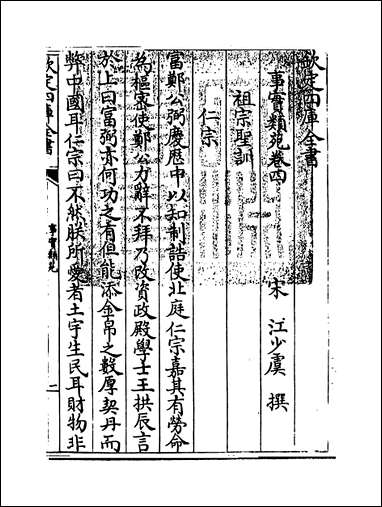 欽定四庫全書
事實類苑卷四
宋 江少虞 撰
祖宗聖訓
仁宗
富鄭公弼慶歷中以知制誥使北庭仁宗嘉其有勞命
為樞密使鄭公力辭不拜乃改資政殿學士王拱辰言
於上曰富弼亦何功之有但能添金帛之數厚契丹而
弊中國耳仁宗曰不然朕所愛者土宇生民耳財物非
欽定四庫全書
事實類苑
二